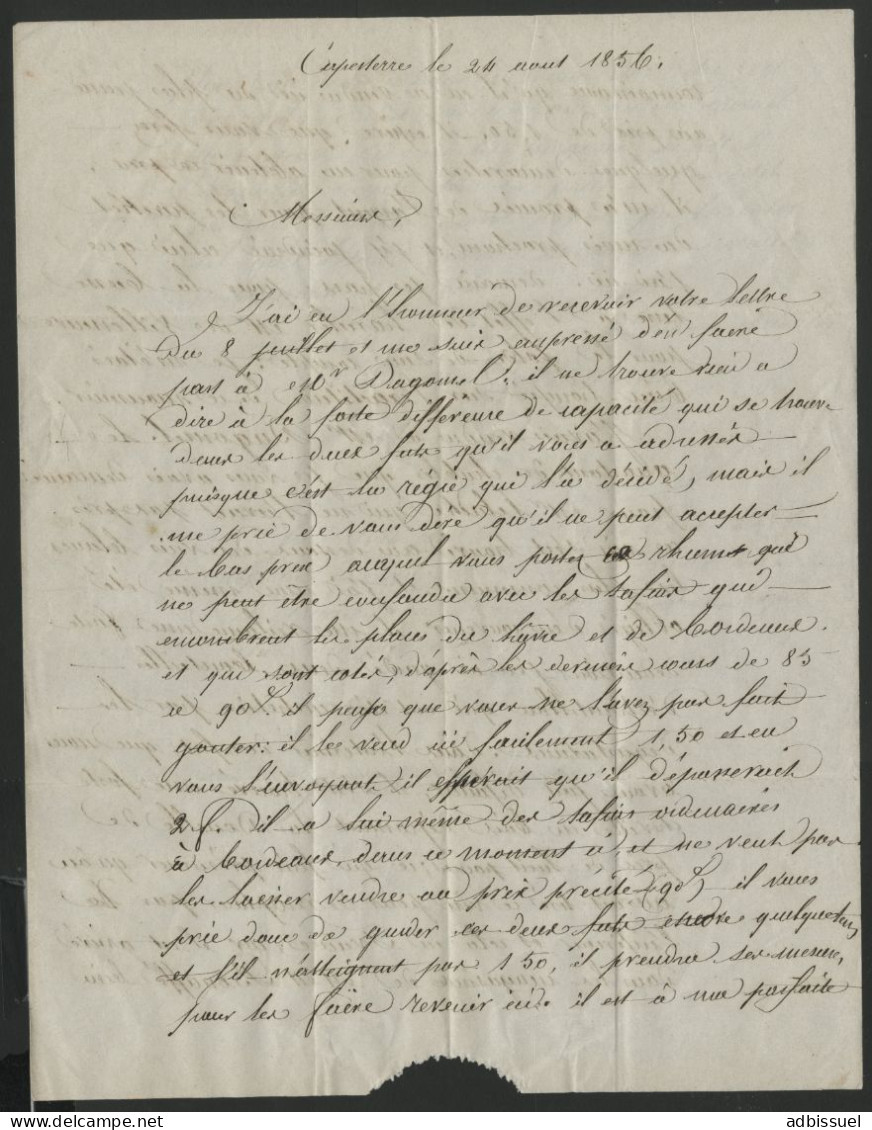 Capesterre le 24 aout 1856.
Messieurs,
J'ai eu l'honneur de recevoir votre lettre
du 8 juillet et me suis empressé d'en faire
part à Mr Dagomel. il ne trouve rien a
dire à la forte différence de capacité qui se trouve
dans les deux futs qu'il vous a adressés
puisque c'est la régie qui l'a décidé, mais il
me prie de vous dire qu'il ne peut accepter
le bas prix auquel vous portez ce rhum qui
ne peut être confondu avec les tafias qui
encombrent les places du hâvre et de Bordeaux.
et qui sont cotés, d'après les derniers cours de 85
à 90c. il pense que vous ne l'avez pas fait
gouter: il le vend ici facilement 1,50 et en
vous l'envoyant, il espérait qu'il dépasserait
2 f. il a lui même des tafias ordinaires
à Bordeaux, dans ce moment à, et ne veut pas
les laisser vendre au prix précité (90c) il vous
prie donc de garder ces deux futs encore quelque tems
et s'il n'atteignent pas 1 50, il prendra ses mesures,
pour les faire revenir ici. il est à ma parfaite
adbissuel
www.delcampe.net